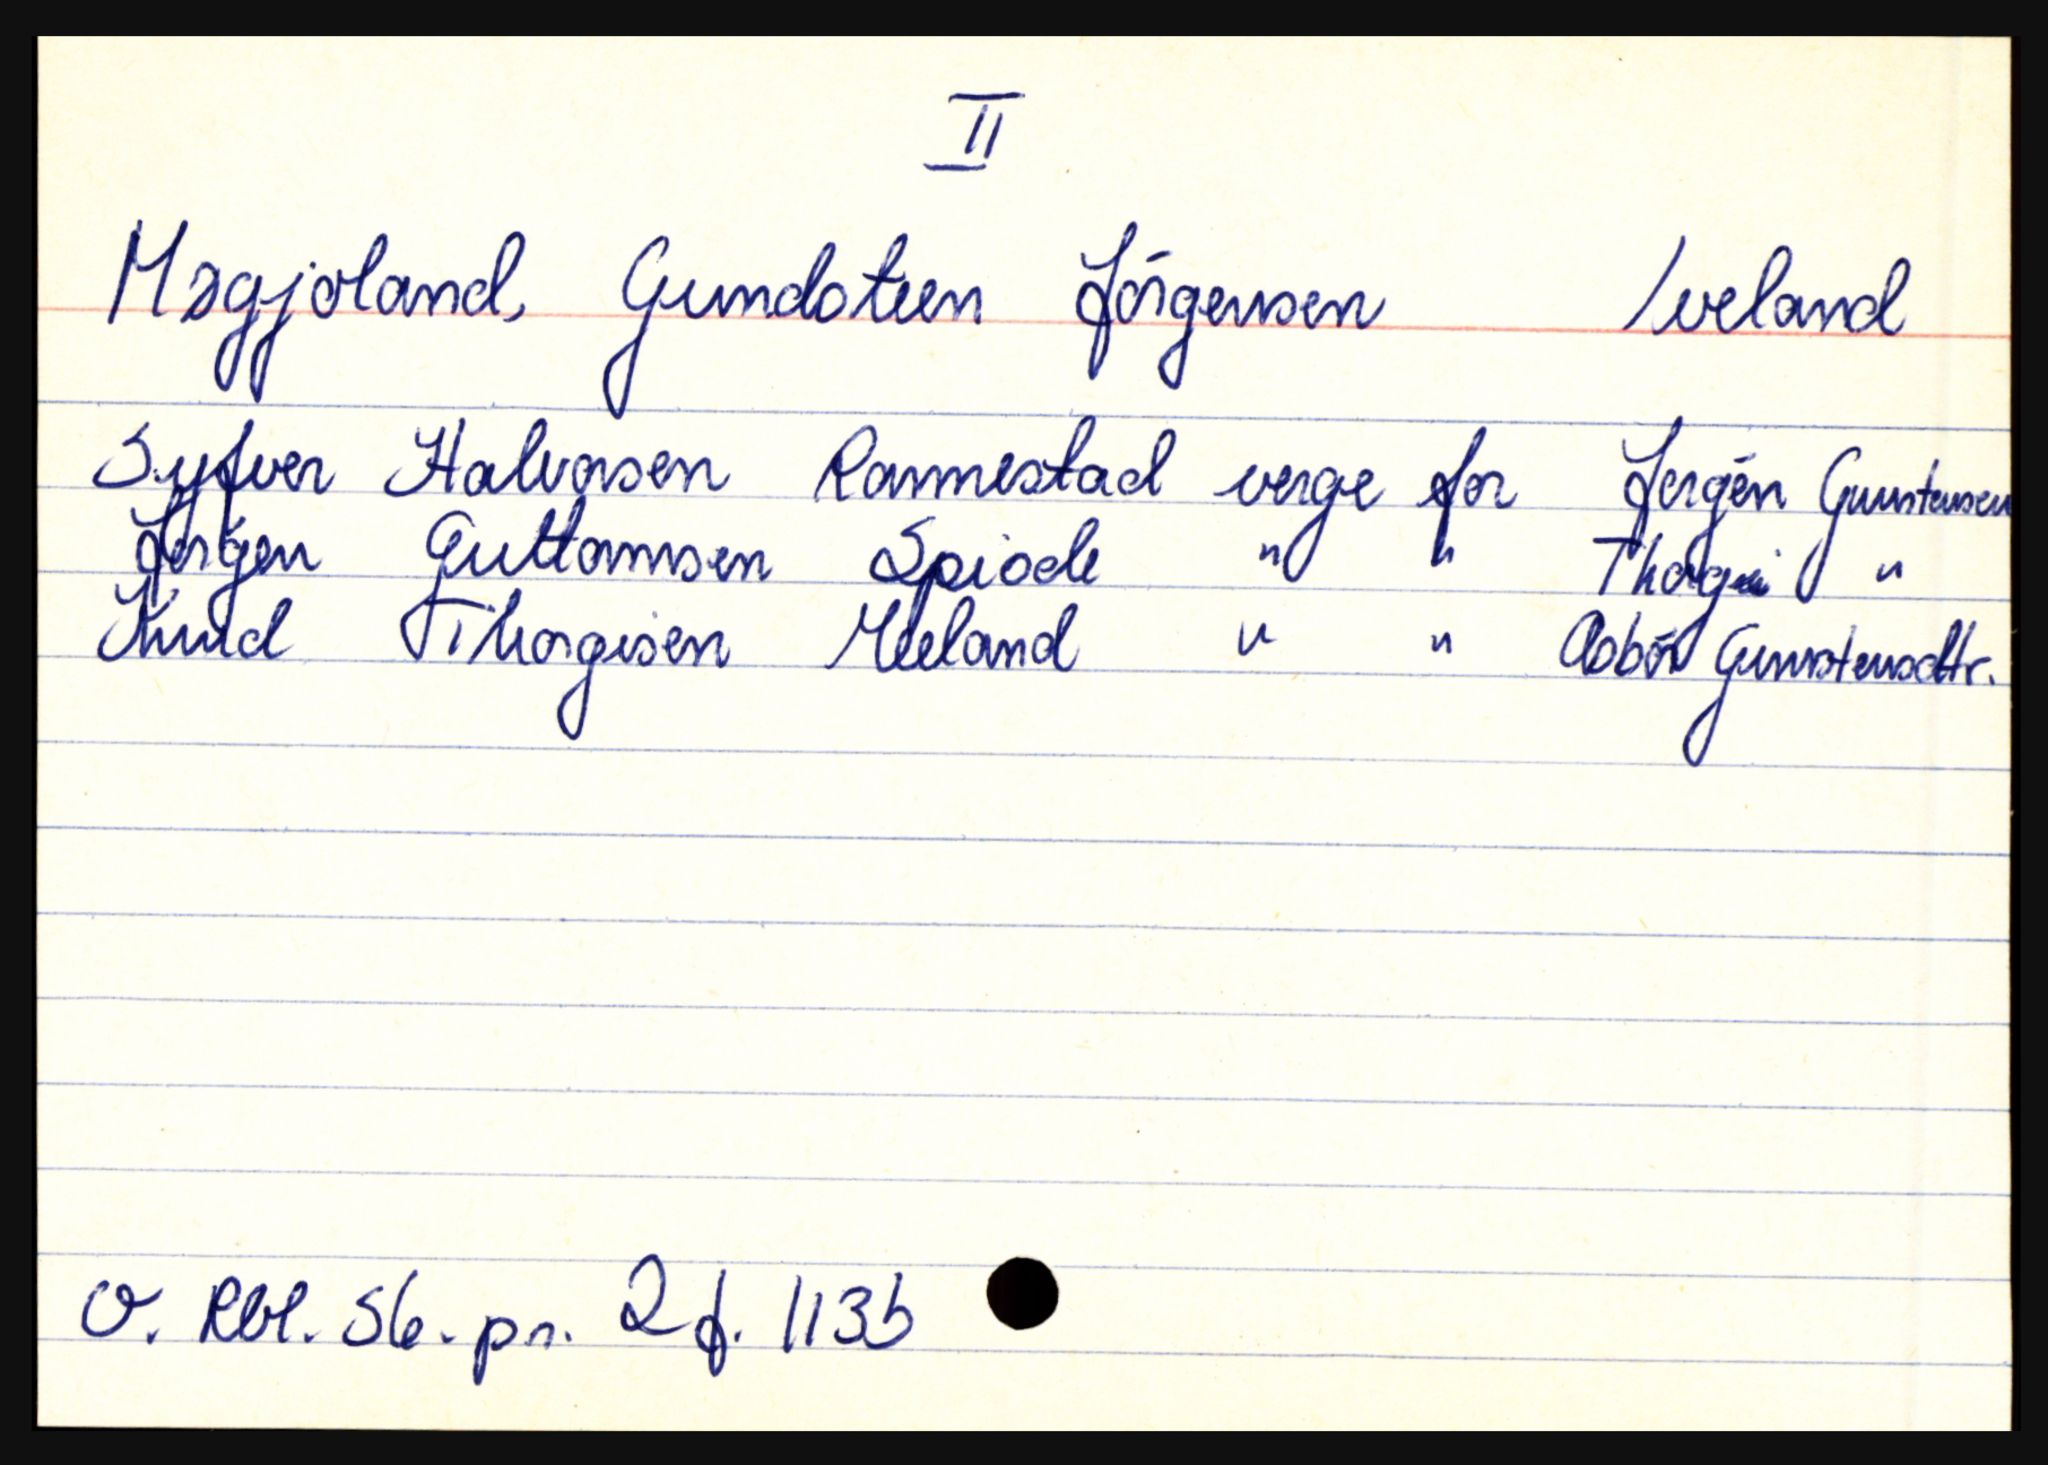 II
Mægjøland, Gundsteen Jörgensen Iveland
Syfver Halvorsen Rannestad verge for Jørgen Gunstensen
Jørgen Guttormsen Spiode " " Thorgri "
Knud Thorgisen Meeland " " Asbör Gunstensdtr.
O. Rbl. S6. pr. 2 f. 113b